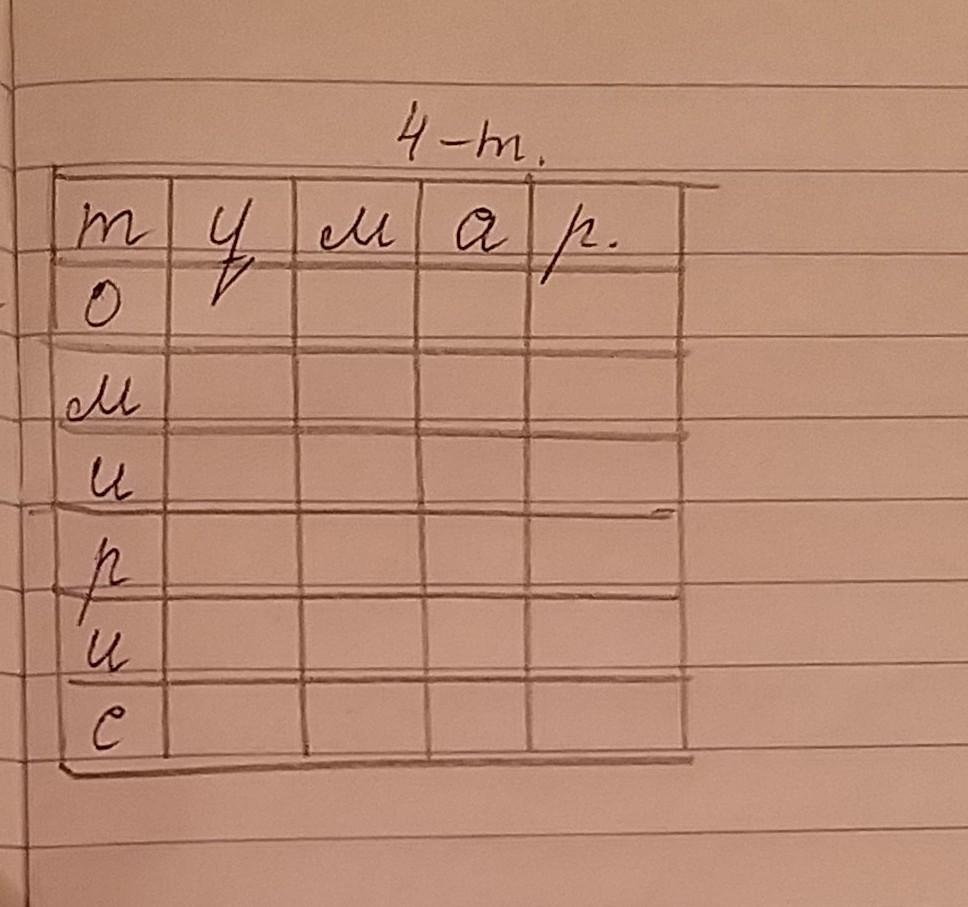 4-т.
т у м а р.
о
м
и
р
и
с